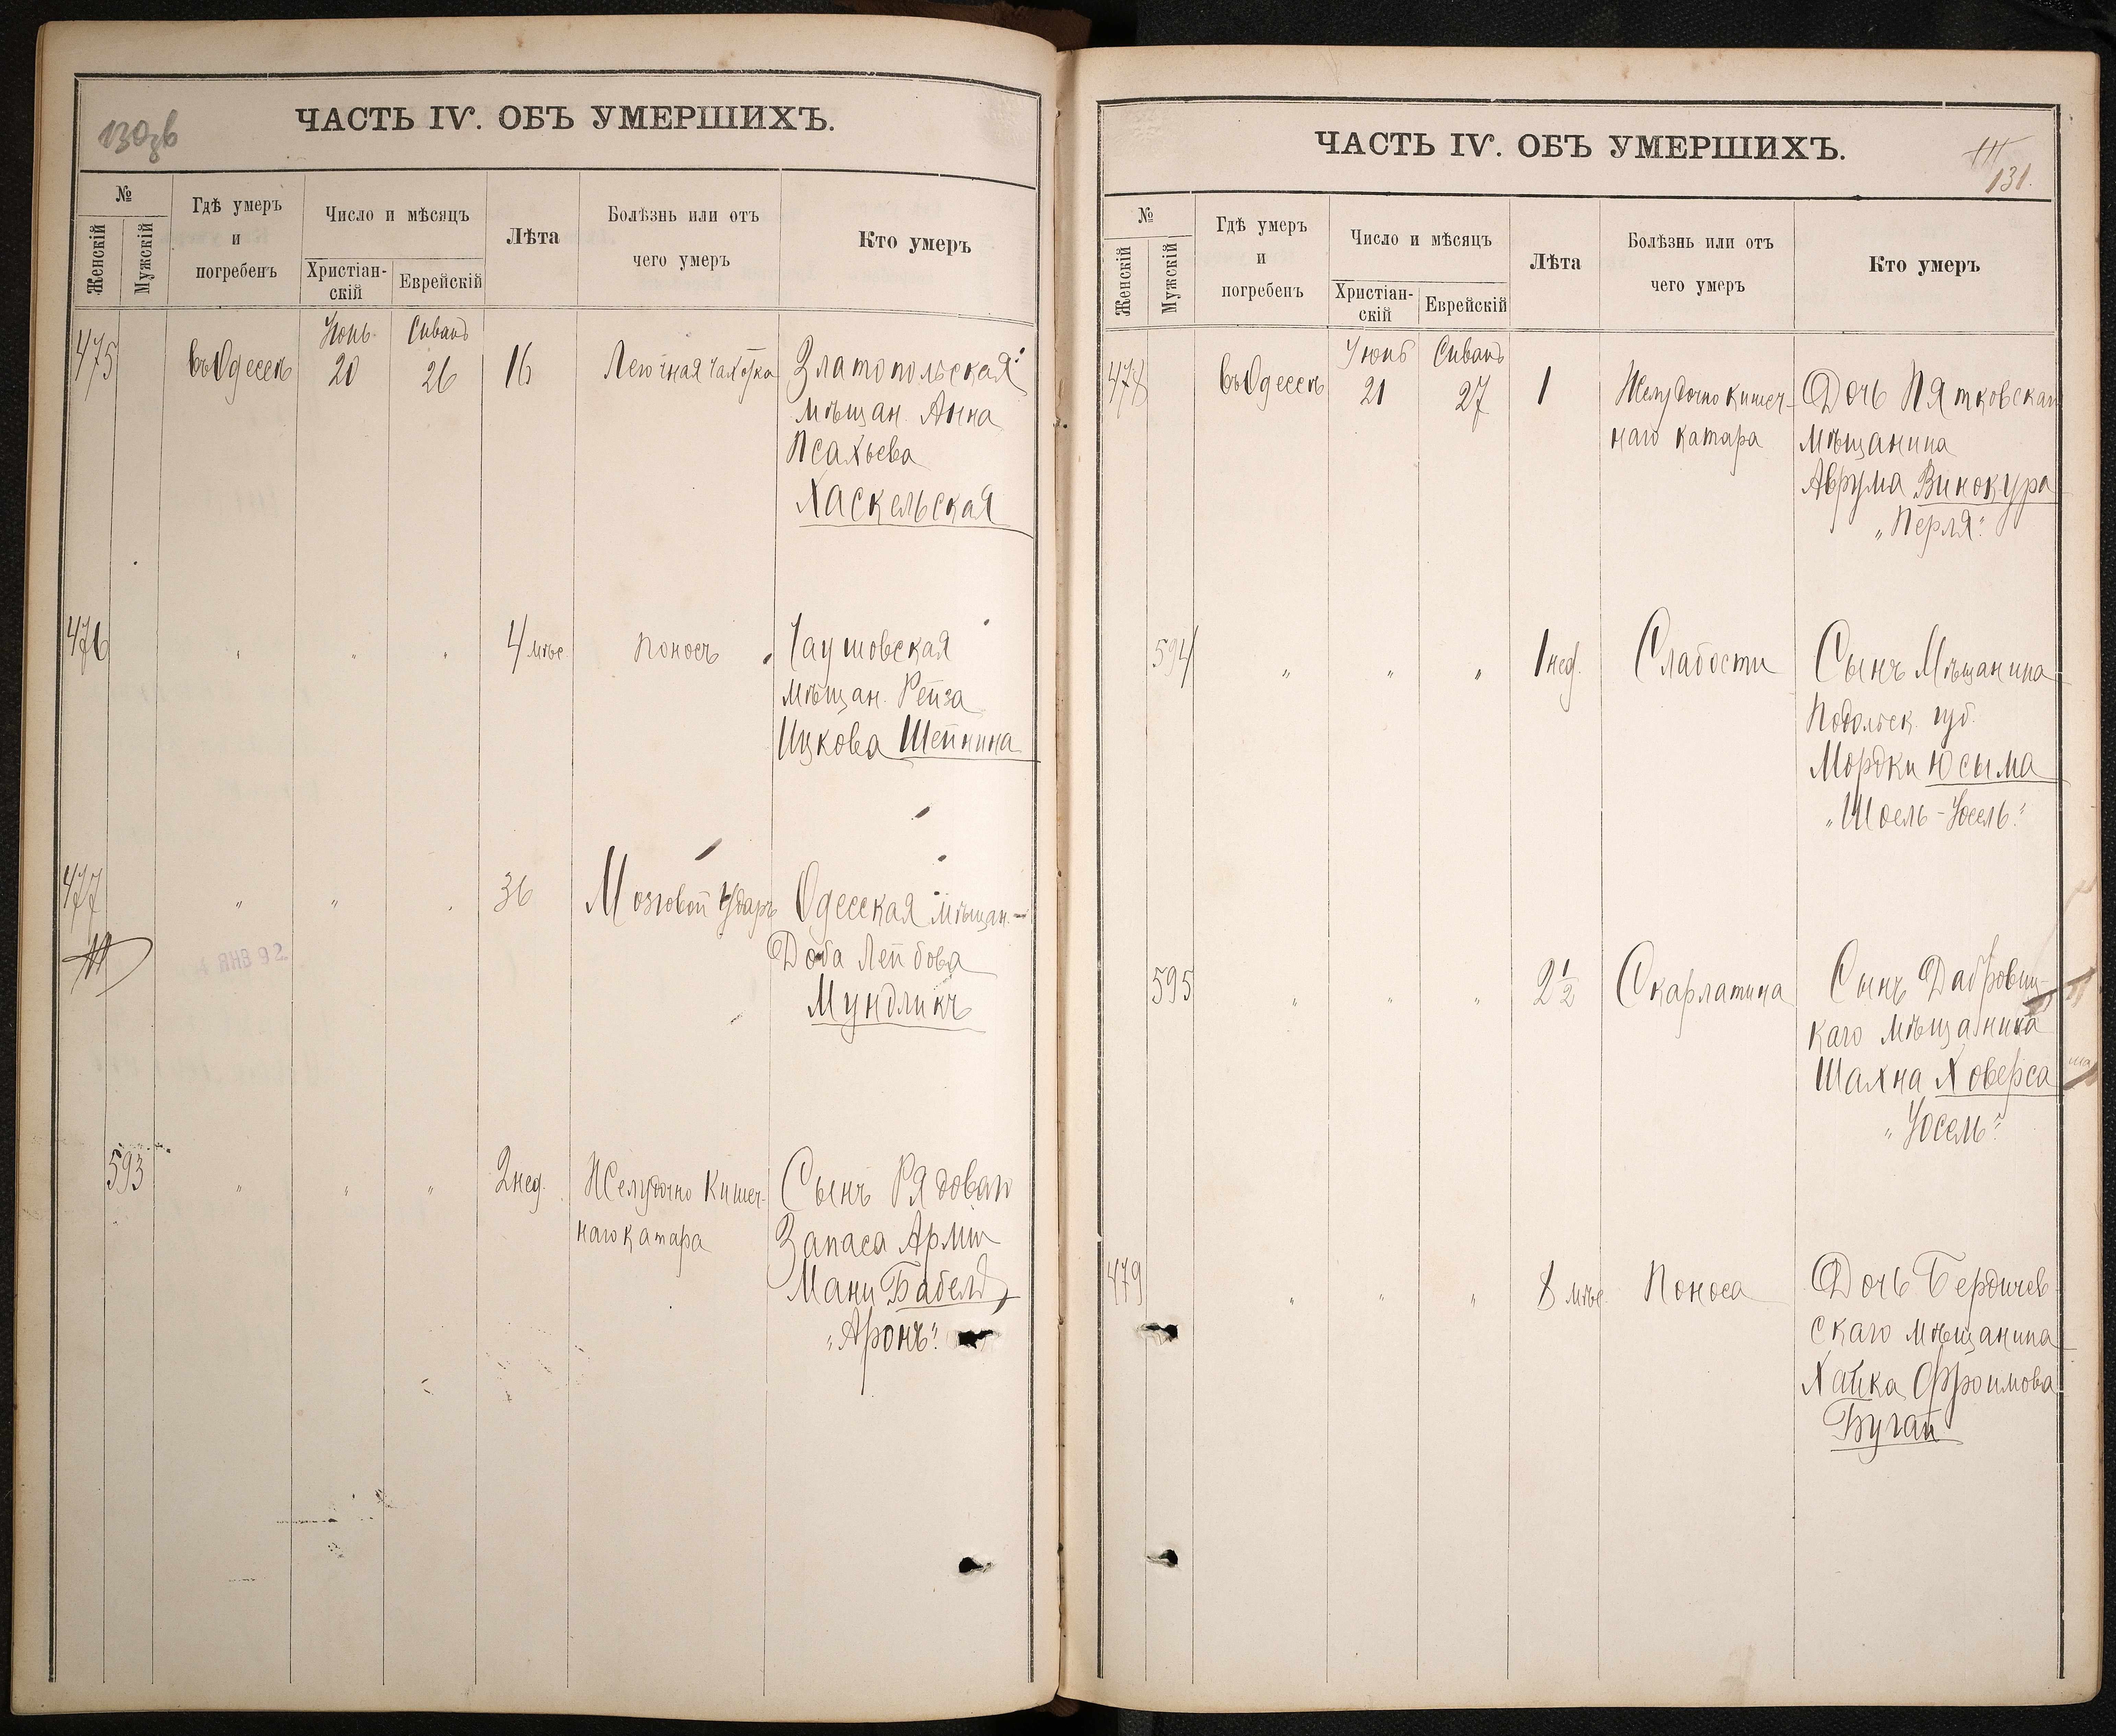 130об
ЧАСТЬ IV. ОБЪ УМЕРШИХЪ.
№
Женскій
Мужскій
Гдѣ умеръ
и
погребенъ
Число и мѣсяцъ
Христіан-
скій
Еврейскій
Лѣта
Болѣзнь или отъ
чего умеръ
Кто умеръ
Іюнь Сиванъ
475 въ Одессѣ 20 26 16 Легочная чахотка Златопольская
мѣщан. Анна
Псахьева
Хаскельская
476 " " " 4 мѣс. Поносъ Чаушовская
мѣщан. Рейза
Ицкова Шейнина
477 " " " 36 Мозговой ударъ Одесская мѣщан.
Доба Лейбова
ЯНВ 92
Мундликъ
593 " " " 2 нед. Желудочно Кишеч-
наго катара
Сынъ Рядоваго
Запаса Арміи
Мани Бабель
"Аронъ"
ЧАСТЬ IV. ОБЪ УМЕРШИХЪ.
131.
№
Женскій
Мужскій
Гдѣ умеръ
и
погребенъ
Число и мѣсяцъ
Христіан-
скій
Еврейскій
Лѣта
Болѣзнь или отъ
чего умеръ
Кто умеръ
Іюнь Сиванъ
478 въ Одессѣ 21 27 1 Желудочно кишеч-
наго катара
Дочь Пятковскаго
мѣщанина
Аврума Винокура
"Перля"
594 " " " 1 нед. Слабости Сынъ Мѣщанина
Подольск. губ.
Мордки Юсыма
"Шоель-Іосель"
595 " " " 2 1/2 Скарлатина Сынъ Дабровиц-
каго мѣщанина
Шахна Ховерса
"Іосель"
479 " " " 8 мѣс. Поноса Дочь Бердичев
скаго мѣщанина
Хайка Фроимова
Бугай